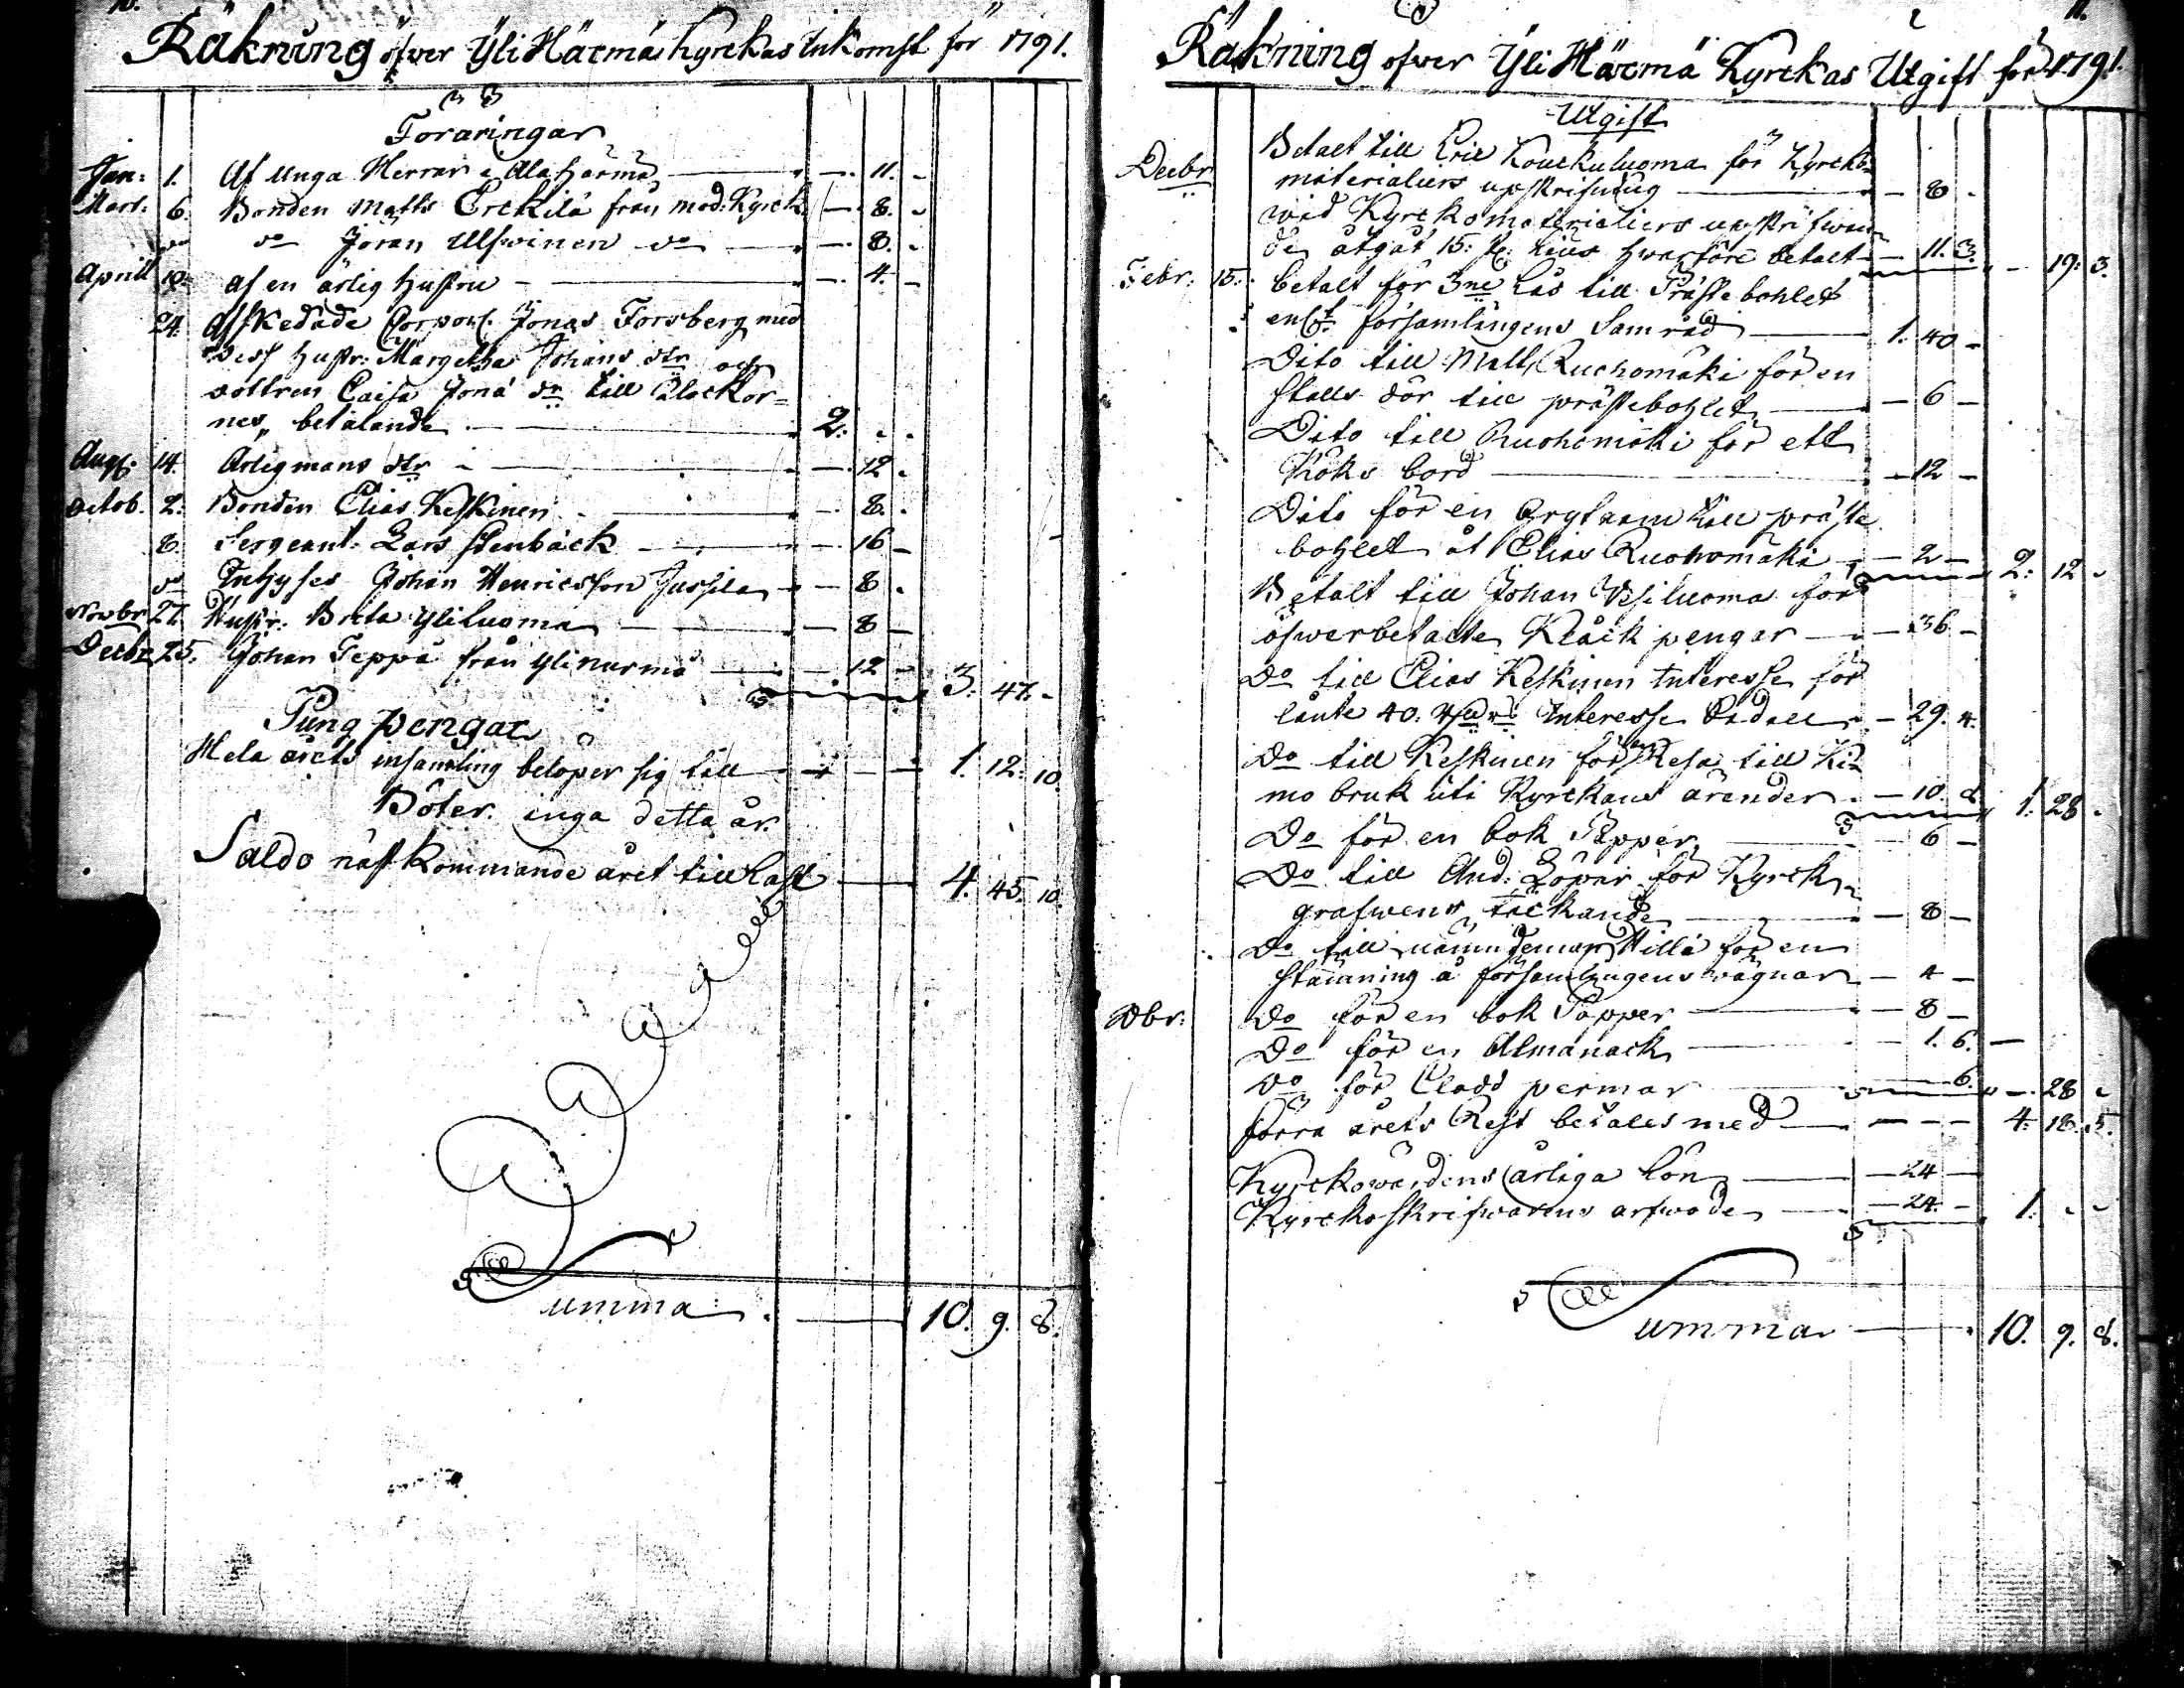 10.
Räkning öfwer Yli Härmä Kyrckas Inkomst för 1791.
Föräringar
Jan: 1. Af Unga Herrar i Ala härmä — 11. -
Mart: 6. Bonden Matts Erckilä från mod: Kyrck. — 8. -
do do Jöran Ulfwinen do — 8. -
Aprill 10. Af en ärlig hustru — 4. -
24. Afskedade Corporl. Jonas Forsberg med
dess hustr: Margetha Johans dtr och
dottren Caisa Jona dr till Clockor=
nes betalande — 2. - -
Augt: 14. Ärlig mans dtr — 12 -
Octob. 2. Bonden Elias Keskinen — 8. -
8. Sergeant. Lars Stenbäck — 16 -
do Inhyses Johan Henricsson Jussila — 8 -
Novbr 27. Hustr. Brita Yliluoma — 8 -
Decbr 25. Johan Teppå från Ylinurmo — 12 - 3. 47. -
Pung pengar
Hela årets insamling beloper sig till — 1. 12. 10.
Böter. inga detta år.
Saldo näst kommande året till last — 4. 45. 10.
Summa — 10. 9. 8.
11.
Räkning öfwer Yli Härmä Kyrckas Utgift för 1791.
Utgift
Decbr Betalt till Eric Kouckuluoma för Kyrcko
materialiers upskrifning — 8 -
wid Kyrcko materialiers upskrifwan
de åtgåt 15. lius hwarföre betalt — 11. 3. — 19: 3.
Febr: 15. betalt för 3ne Lås till Prästebohlet
enl:t församlingens Samråd — 1. 40 -
Dito till Matts Ruohomäki för en
stalls dör till prästebohlet — 6 -
Dito till Ruohomäki för ett
Köks bord — 12 -
Dito för en till präste
bohlet åt Elias Ruohomäki — 2 — 2: 12 -
Betalt till Johan Wesiluoma för
öfwerbetalte Klåck pengar — 36 -
Do till Elias Keskinen Interesse för
lånte 40. Interesse — 29. 4.
Do till Keskinen för en Resa till Ki
mo bruk uti Kyrckans ärender — 10. 8 1. 28 -
Do för en bok Papper — 6 -
Do till And: Löper för Kyrck
grafwens täckande — 8 -
Do till nämndeman Hillä för en
stämning å församlingens wägnar — 4 -
Dbr: Do för en bok Papper — 8 -
Do för en Almanack — 1. 6. —
Do för Cladd permar — 6. — 28 -
Förra årets Rest betales med — 4. 18. 5.
Kyrckowärdens årliga Lön — 24 —
Kyrckoskrifwarens arfwode — 24. - 1. - -
Summa — 10. 9. 8.